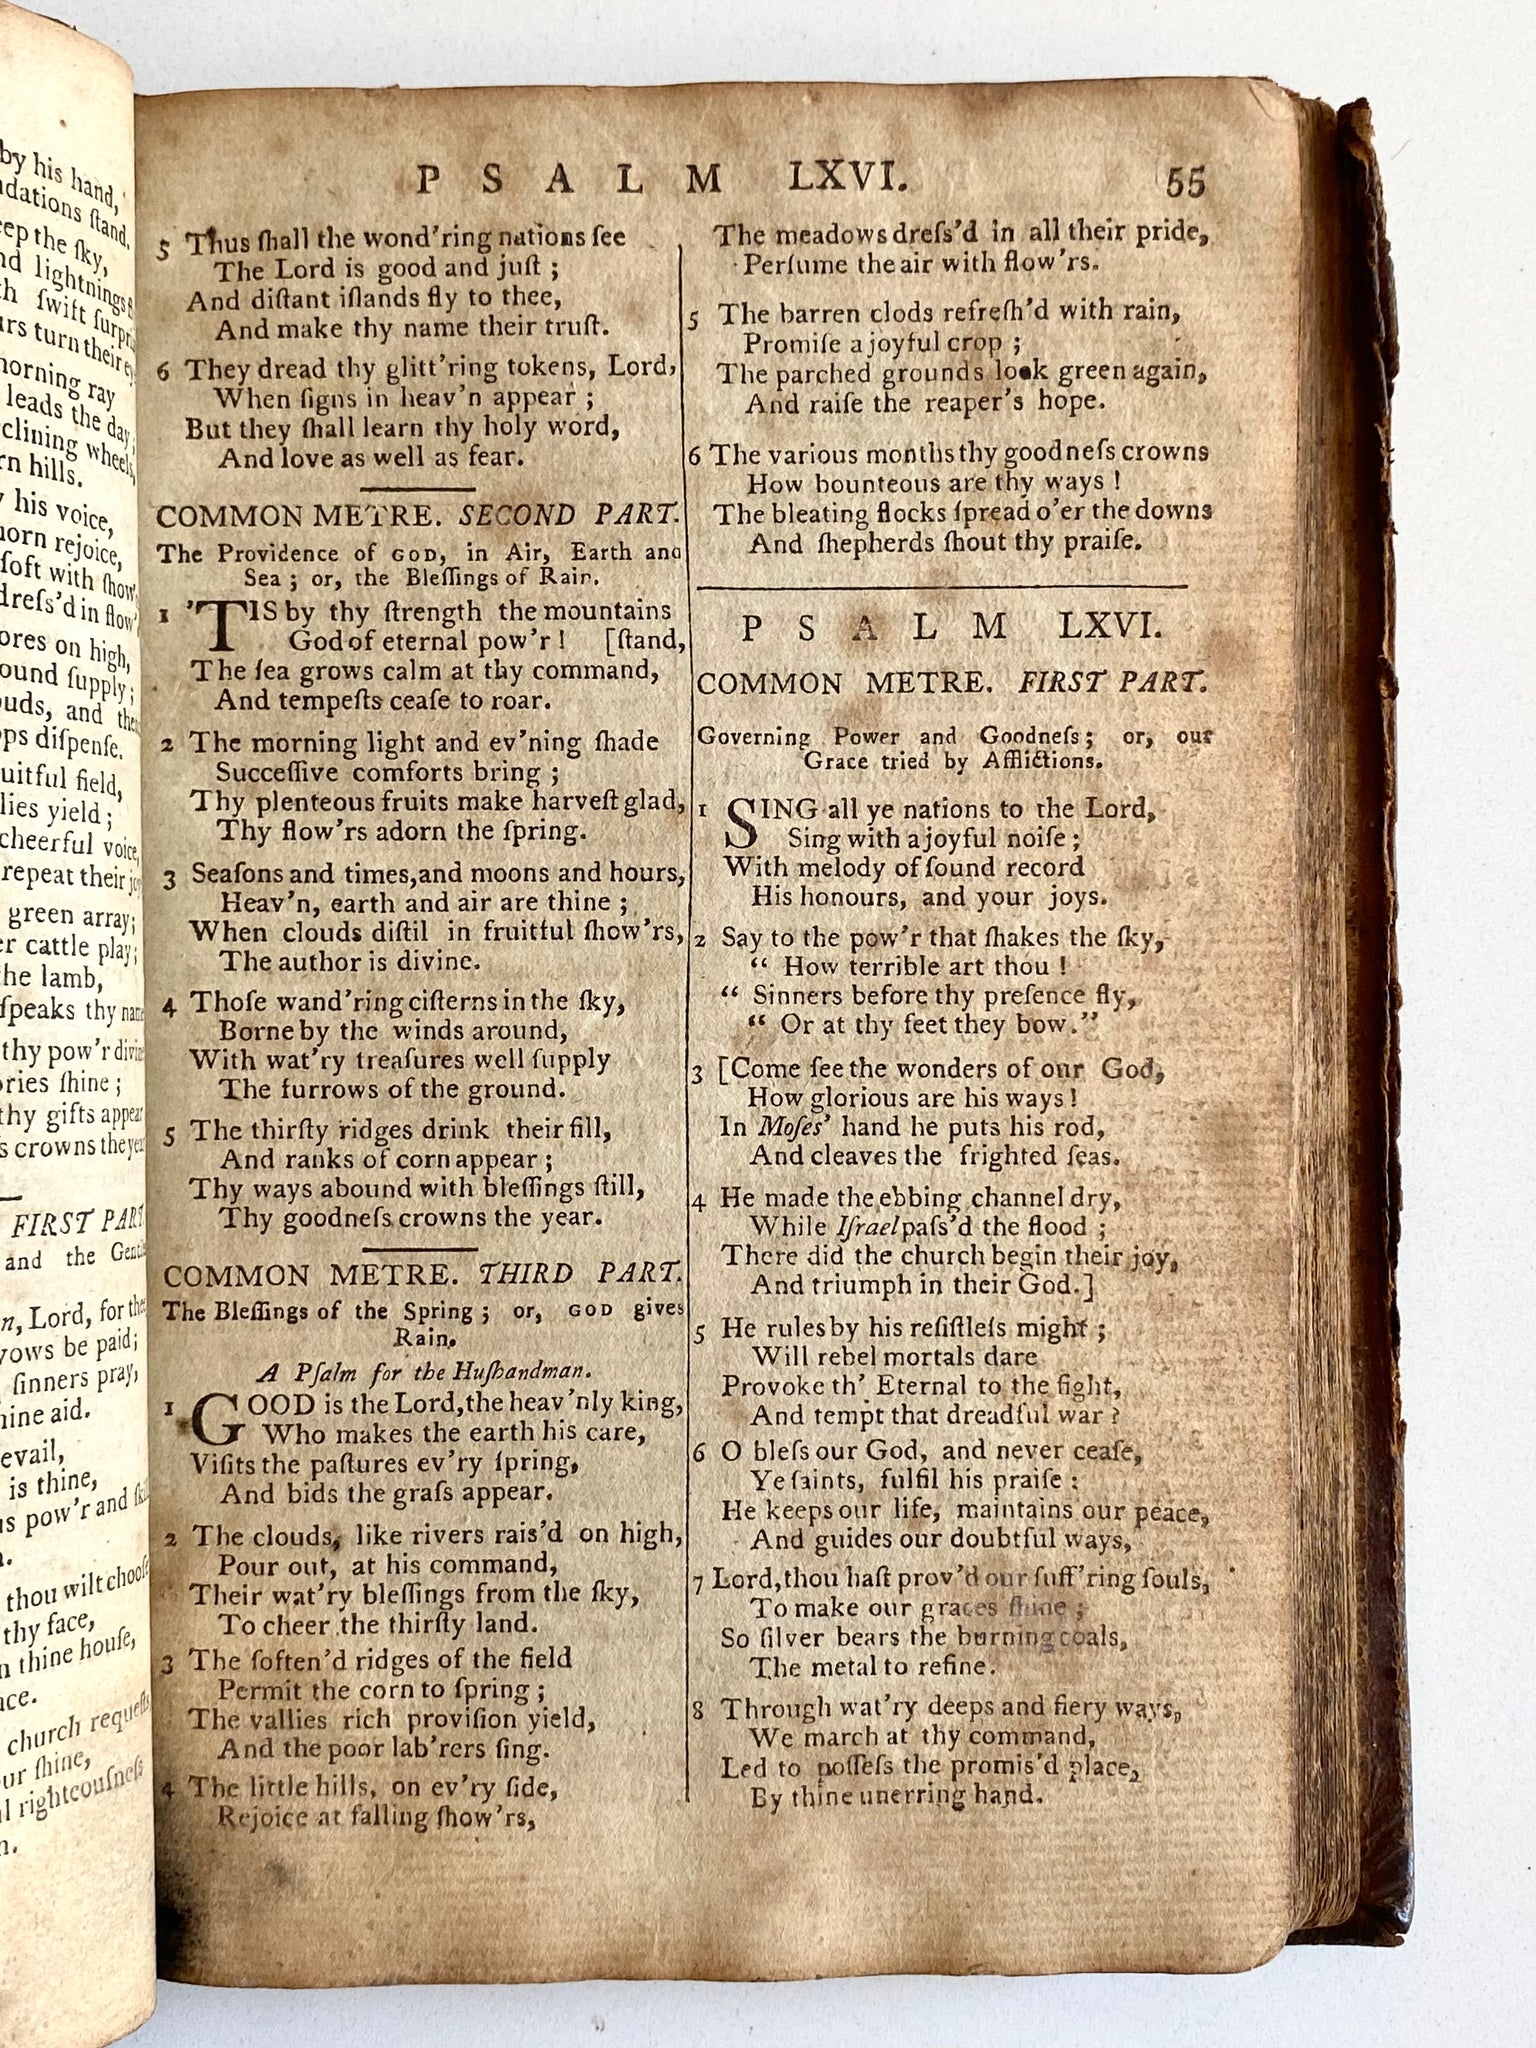 by his hand,
ndations ſtand.
eep the ſky,
nd lightnings
th ſwift ſurpri
urs turn their
morning ray
leads the day;
clining wheels,
rn hills.
his voice,
morn rejoice,
ſoft with ſhow'
dreſs'd in flow'
ores on high,
ound ſupply;
ouds, and
ps diſpenſe.
uitful field,
lies yield;
cheerful voice,
repeat their
green array;
er cattle play;
the lamb,
ſpeaks thy
thy pow'r
ories ſhine;
thy gifts appear
s crowns the year
FIRST PART.
and the
n, Lord, for
vows be paid;
ſinners pray,
hine aid.
evail,
is thine,
us pow'r and
thou wilt chooſe
thy face,
n thine houſe,
ce.
church requeſts
ur ſhine,
l righteouſneſs
n.
PSALM LXVI. 55
5 Thus ſhall the wond'ring nations ſee
The Lord is good and juſt;
And diſtant iſlands fly to thee,
And make thy name their truſt.
6 They dread thy glitt'ring tokens, Lord,
When ſigns in heav'n appear;
But they ſhall learn thy holy word,
And love as well as fear.
COMMON METRE. SECOND PART.
The Providence of GOD, in Air, Earth and
Sea; or, the Bleſſings of Rain.
1 'TIS by thy ſtrength the mountains
God of eternal pow'r! [ſtand,
The ſea grows calm at thy command,
And tempeſts ceaſe to roar.
2 The morning light and ev'ning ſhade
Succeſſive comforts bring;
Thy plenteous fruits make harveſt glad,
Thy flow'rs adorn the ſpring.
3 Seaſons and times, and moons and hours,
Heav'n, earth and air are thine;
When clouds diſtil in fruitful ſhow'rs,
The author is divine.
4 Thoſe wand'ring ciſterns in the ſky,
Borne by the winds around,
With wat'ry treaſures well ſupply
The furrows of the ground.
5 The thirſty ridges drink their fill,
And ranks of corn appear;
Thy ways abound with bleſſings ſtill,
Thy goodneſs crowns the year.
COMMON METRE. THIRD PART.
The Bleſſings of the Spring; or, GOD gives
Rain.
A Pſalm for the Huſbandman.
1 GOOD is the Lord, the heav'nly king,
Who makes the earth his care,
Viſits the paſtures ev'ry ſpring,
And bids the graſs appear.
2 The clouds, like rivers rais'd on high,
Pour out, at his command,
Their wat'ry bleſſings from the ſky,
To cheer the thirſty land.
3 The ſoften'd ridges of the field
Permit the corn to ſpring;
The vallies rich proviſion yield,
And the poor lab'rers ſing.
4 The little hills, on ev'ry ſide,
Rejoice at falling ſhow'rs,
The meadows dreſs'd in all their pride,
Perfume the air with flow'rs.
5 The barren clods refreſh'd with rain,
Promiſe a joyful crop;
The parched grounds look green again,
And raiſe the reaper's hope.
6 The various months thy goodneſs crowns
How bounteous are thy ways!
The bleating flocks ſpread o'er the downs
And ſhepherds ſhout thy praiſe.
PSALM LXVI.
COMMON METRE. FIRST PART.
Governing Power and Goodneſs; or, our
Grace tried by Afflictions.
1 SING all ye nations to the Lord,
Sing with a joyful noiſe;
With melody of ſound record
His honours, and your joys.
2 Say to the pow'r that ſhakes the ſky,
“ How terrible art thou!
“ Sinners before thy preſence fly,
“ Or at thy feet they bow.”
3 [Come ſee the wonders of our God,
How glorious are his ways!
In Moſes' hand he puts his rod,
And cleaves the frighted ſeas.
4 He made the ebbing channel dry,
While Iſrael paſs'd the flood;
There did the church begin their joy,
And triumph in their God.]
5 He rules by his reſiſtleſs might;
Will rebel mortals dare
Provoke th' Eternal to the fight,
And tempt that dreadful war?
6 O bleſs our God, and never ceaſe,
Ye ſaints, fulfil his praiſe:
He keeps our life, maintains our peace,
And guides our doubtful ways,
7 Lord, thou haſt prov'd our ſuff'ring ſouls,
To make our graces ſhine;
So ſilver bears the burning coals,
The metal to refine.
8 Through wat'ry deeps and fiery ways,
We march at thy command,
Led to poſſeſs the promis'd place,
By thine unerring hand.